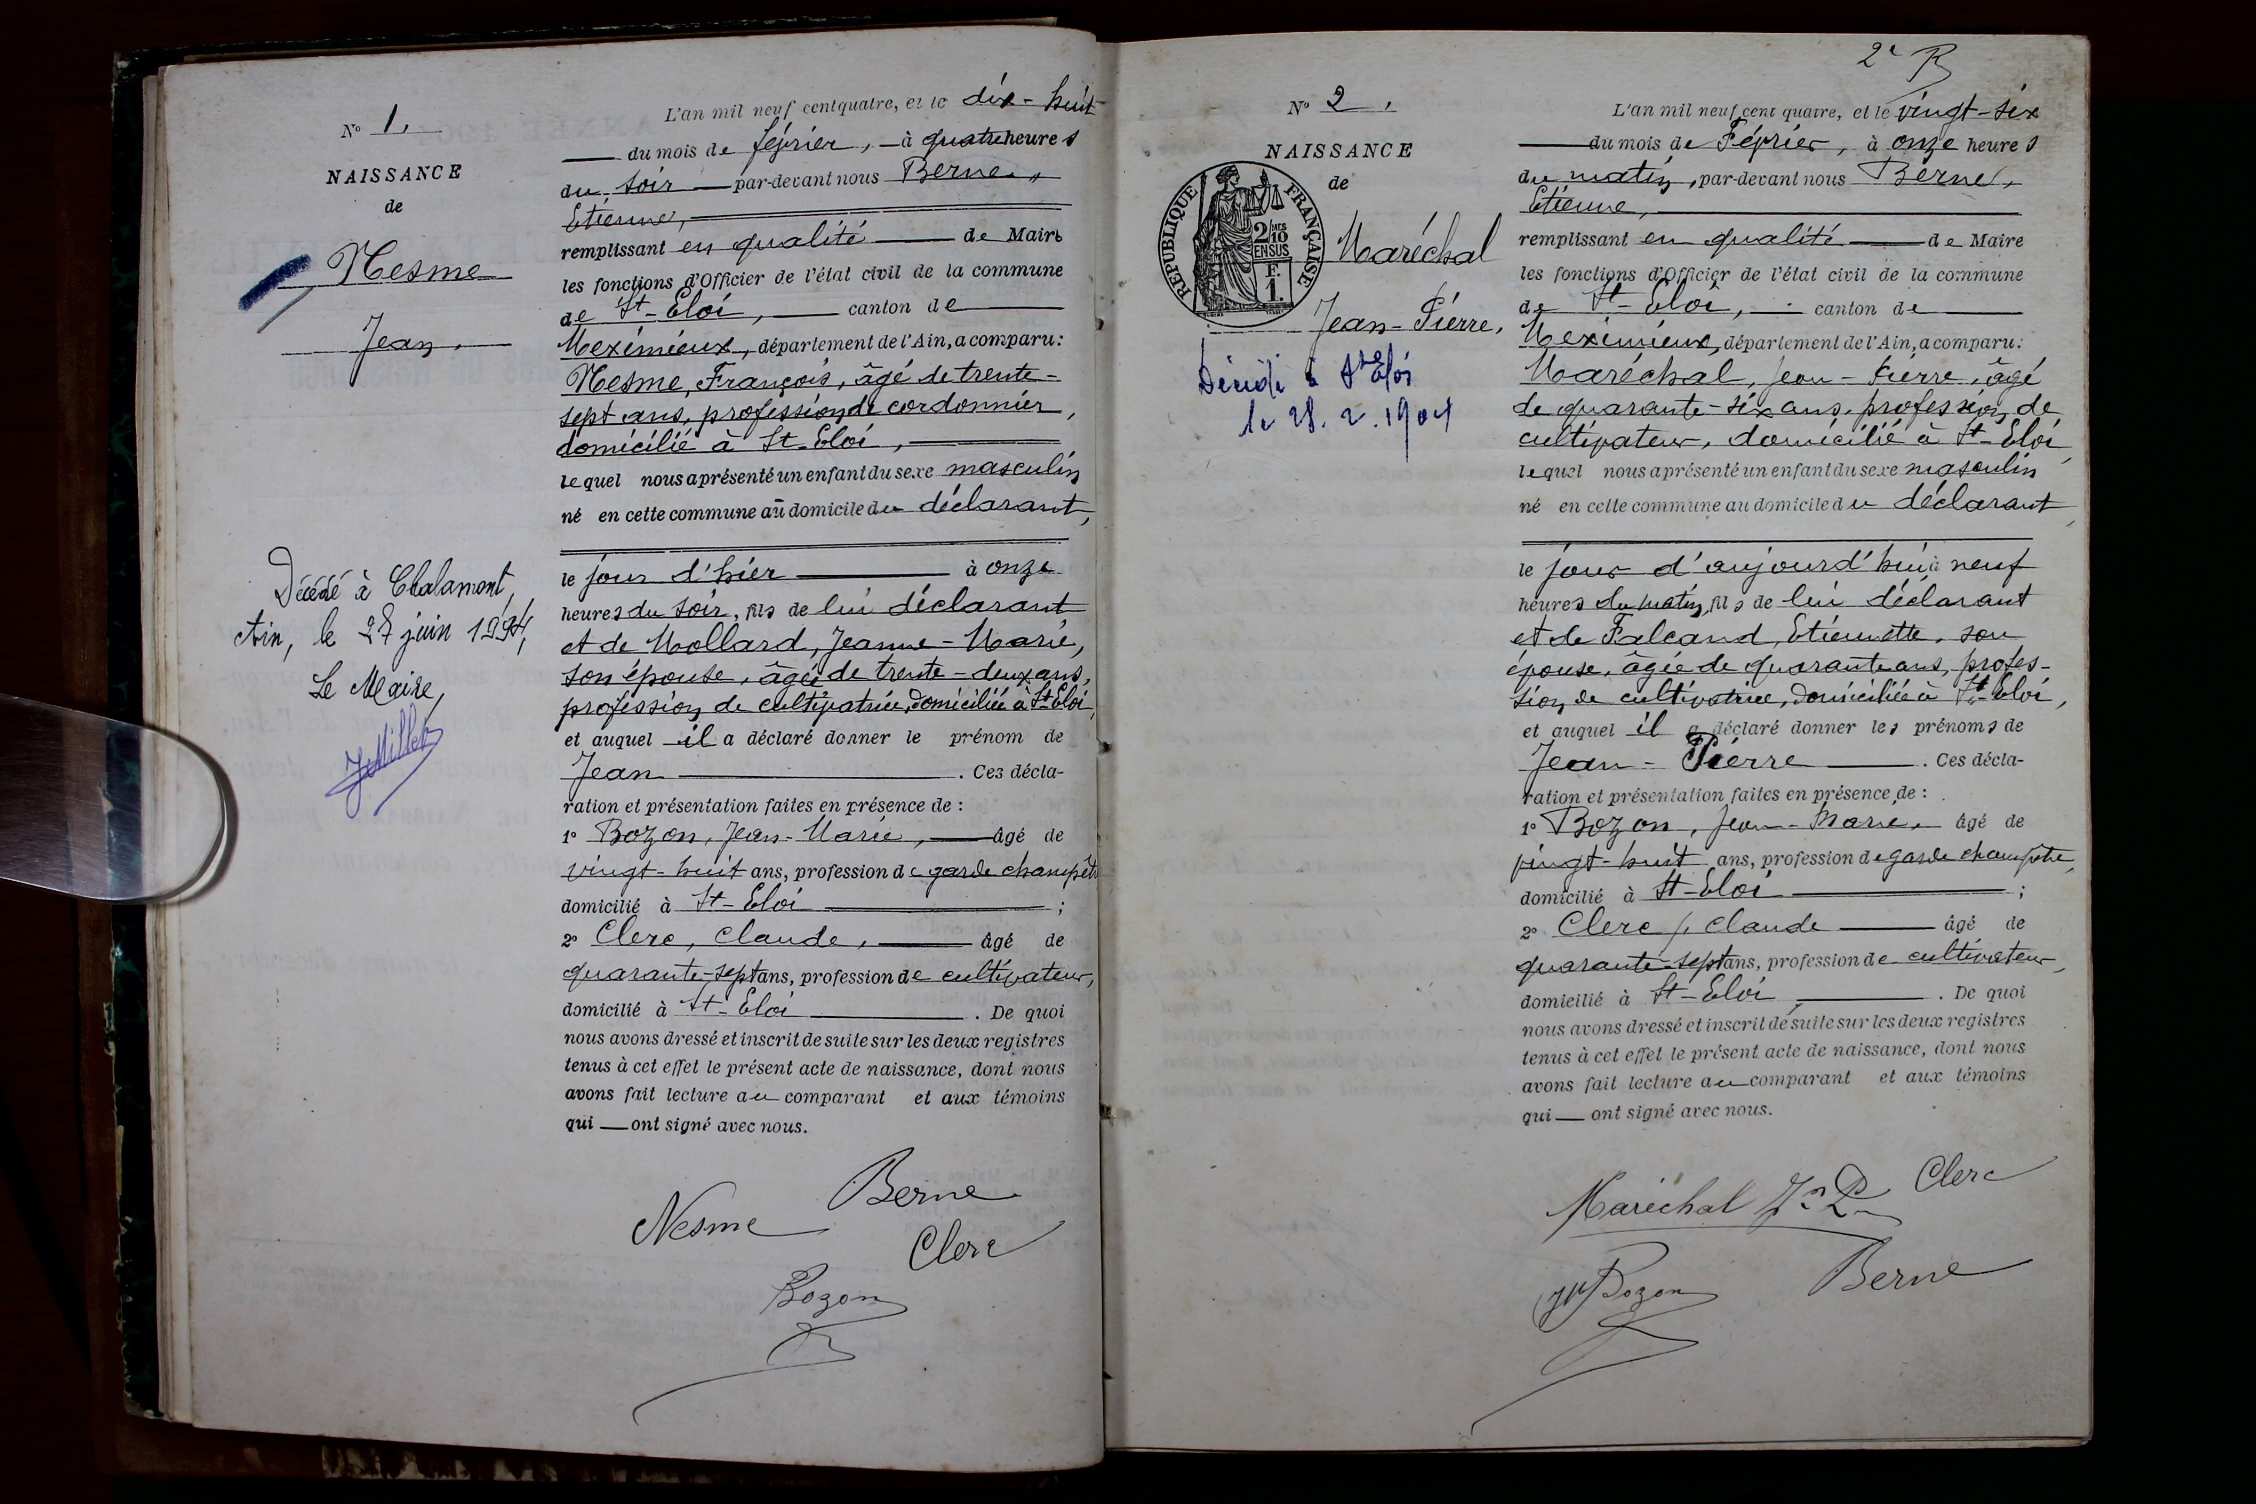 N° 1.
NAISSANCE
de
Nesme
Jean.
Décédé à Chalamont,
Ain, le 27 juin 1994,
Le Maire,
JMillet
L'an mil neuf cent quatre, et le dix-huit
du mois de février, à quatre heures
du soir par-devant nous Berne,
Etienne,
remplissant en qualité de Maire
les fonctions d'Officier de l'état civil de la commune
de St-Eloi, canton de
Meximieux, département de l'Ain, a comparu:
Nesme, François, âgé de trente-
sept ans, profession de cordonnier,
domicilié à St-Eloi,
lequel nous a présenté un enfant du sexe masculin
né en cette commune au domicile du déclarant,
le jour d'hier à onze
heures du soir, fils de lui déclarant
et de Mollard, Jeanne-Marie,
son épouse, âgée de trente-deux ans,
profession de cultivatrice, domiciliée à St-Eloi,
et auquel il a déclaré donner le prénom de
Jean. Ces décla-
ration et présentation faites en présence de :
1° Bozon, Jean-Marie, âgé de
vingt-huit ans, profession de garde champêtre
domicilié à St-Eloi ;
2° Clerc, Claude, âgé de
quarante-sept ans, profession de cultivateur,
domicilié à St-Eloi. De quoi
nous avons dressé et inscrit de suite sur les deux registres
tenus à cet effet le présent acte de naissance, dont nous
avons fait lecture au comparant et aux témoins
qui ont signé avec nous.
Berne
Nesme
Clerc
Bozon
2e
N° 2.
NAISSANCE
de
REPUBLIQUE FRANÇAISE
2/10 MES
EN SUS
F.
1.
Maréchal
Jean-Pierre.
Décédé à St Eloi
le 28.2.1904
L'an mil neuf cent quatre, et le vingt-six
du mois de Février, à onze heures
du matin, par-devant nous Berne,
Etienne,
remplissant en qualité de Maire
les fonctions d'Officier de l'état civil de la commune
de St-Eloi, canton de
Meximieux, département de l'Ain, a comparu:
Maréchal, Jean-Pierre, âgé
de quarante-six ans, profession de
cultivateur, domicilié à St-Eloi
lequel nous a présenté un enfant du sexe masculin
né en cette commune au domicile du déclarant,
le jour d'aujourd'hui à neuf
heures du matin, fils de lui déclarant
et de Falcand, Etiennette, son
épouse, âgée de quarante ans, profes-
sion de cultivatrice, domiciliée à St-Eloi,
et auquel il a déclaré donner les prénoms de
Jean-Pierre. Ces décla-
ration et présentation faites en présence de :
1° Bozon, Jean-Marie, âgé de
vingt-huit ans, profession de garde champêtre,
domicilié à St-Eloi ;
2° Clerc, Claude âgé de
quarante-sept ans, profession de cultivateur,
domicilié à St-Eloi. De quoi
nous avons dressé et inscrit de suite sur les deux registres
tenus à cet effet le présent acte de naissance, dont nous
avons fait lecture au comparant et aux témoins
qui ont signé avec nous.
Maréchal J-P Clerc
JMBozon Berne